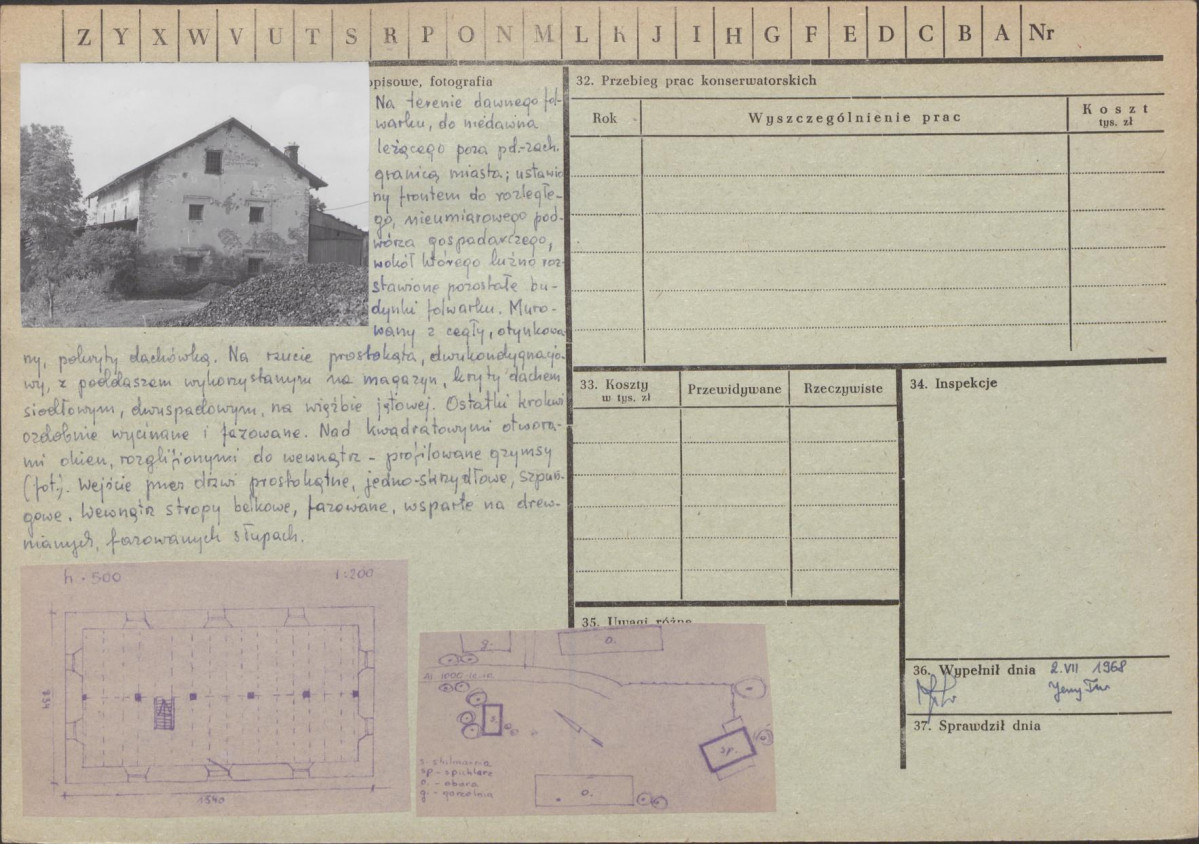 Z Y X W V U T S R P O N M L K J I H G F E D C B A Nr
opisowe, fotografia
Na terenie dawnego fol-
warku, do niedawna
leżącego poza pd.-zach.
granicą miasta; ustawio
ny frontem do rozległe-
go, nieumiarowego pod-
wórza gospodarczego,
wokół którego luźno roz-
stawione pozostałe bu-
dynki folwarku. Muro-
wany z cegły, otynkowa
ny, pokryty dachówką. Na rzucie prostokąta, dwukondygnacjo-
wy, z poddaszem wykorzystanym na magazyn, kryty dachem
siodłowym, dwuspadowym, na więźbie jętowej. Ostatki krokwi
ozdobnie wycinane i fazowane. Nad kwadratowymi otwora-
mi okien, rozglifionymi do wewnątrz - profilowane gzymsy
(fot.). Wejście przez drzwi prostokątne, jedno-skrzydłowe, szpun-
gowe. Wewnątrz stropy belkowe, fazowane, wsparte na drew-
nianych, fazowanych słupach.
h - 500 1:200
934
1540
g. o.
Al. 1000-lecia
s.
sp.
o.
sp - spichlerz
o. - obora
g. - gorzelnia
32. Przebieg prac konserwatorskich
Rok Wyszczególnienie prac Koszt
tys. zł
33. Koszty
w tys. zł
Przewidywane Rzeczywiste
34. Inspekcje
35. Uwagi różne
36. Wypełnił dnia 2.VII 1968
37. Sprawdził dnia